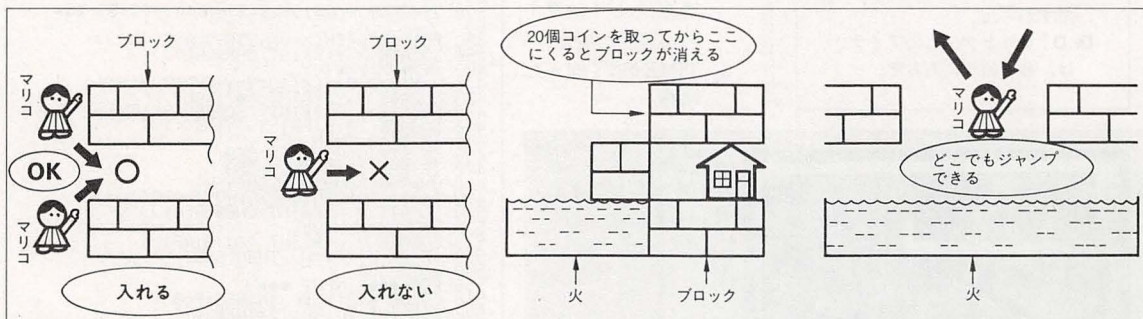 ブロック
マリコ
OK
マリコ
入れる
ブロック
マリコ
入れない
20個コインを取ってからここ
にくるとブロックが消える
火
ブロック
マリコ
どこでもジャンプ
できる
火